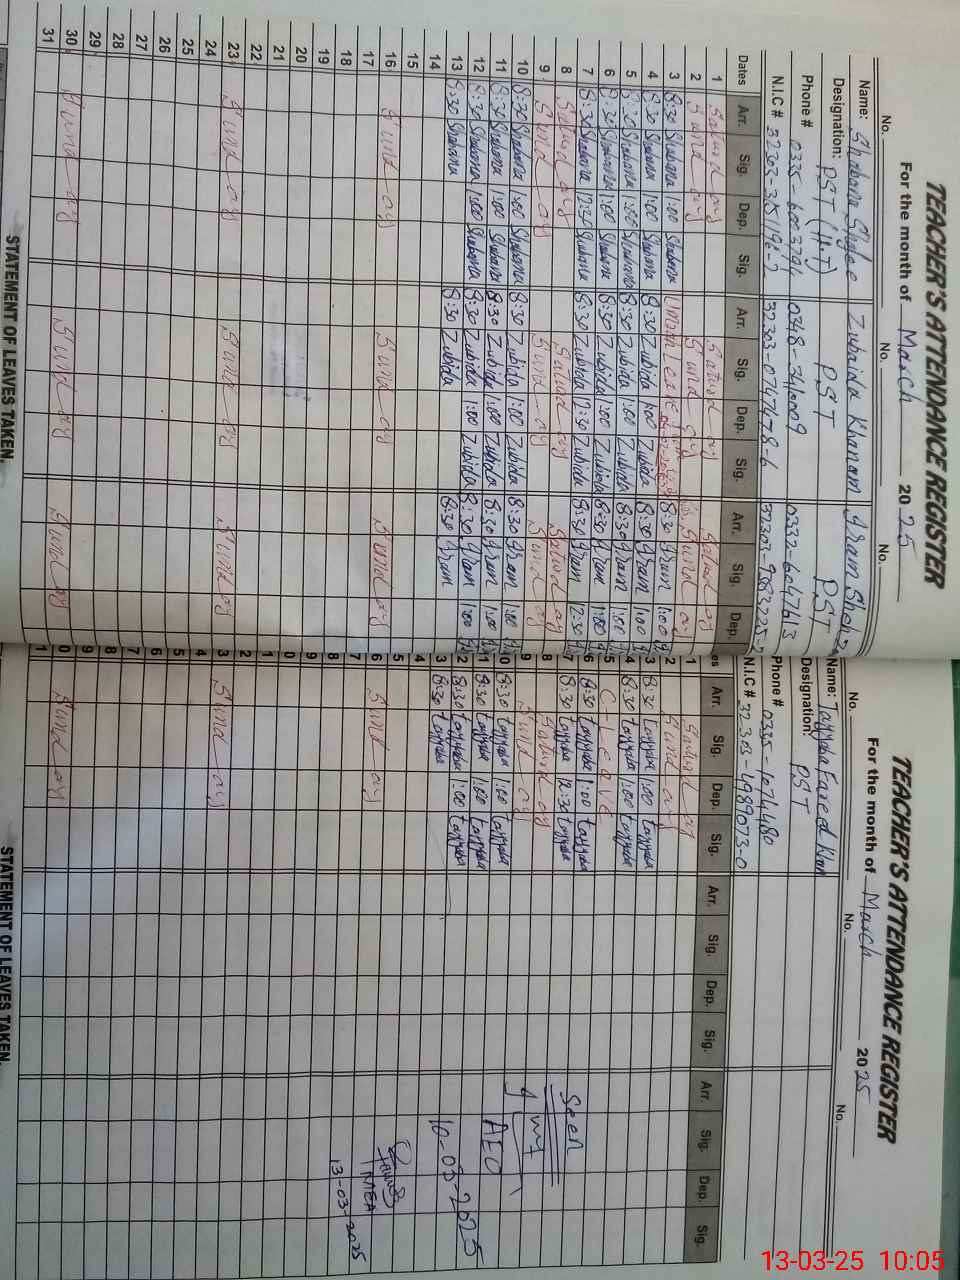 TEACHER'S ATTENDANCE REGISTER
For the month of March 2025
No. No. No.
Name: Shabana Zubaida Khanam
Designation: PST PST PST
Phone # 0335-6003794 0348-3411009 0332-6047613
N.I.C #
Dates Arr. Sig. Dep. Sig. Arr. Sig. Dep. Sig. Arr. Sig. Dep.
1 Saturd ay Saturd ay Saturd ay
2 Sund ay Sund ay Sund ay
3 8:30 Shabana 1:00 Shabana Leave 8:30 Iram 1:00
4 8:30 Shabana 1:00 Shabana 8:30 Zubida 1:00 Zubida 8:30 Iram 1:00
5 8:30 Shabana 1:00 Shabana 8:30 Zubida 1:00 Zubida 8:30 Iram 1:00
6 8:30 Shabana 1:00 Shabana 8:30 Zubida 1:00 Zubida 8:30 Iram 1:00
7 8:30 Shabana 12:30 Shabana 8:30 Zubida 12:30 Zubida 8:30 Iram 12:30
8 Saturd ay Saturd ay Saturd ay
9 Sund ay Sund ay Sund ay
10 8:30 Shabana 1:00 Shabana 8:30 Zubida 1:00 Zubida 8:30 Iram 1:00
11 8:30 Shabana 1:00 Shabana 8:30 Zubida 1:00 Zubida 8:30 Iram 1:00
12 8:30 Shabana 1:00 Shabana 8:30 Zubida 1:00 Zubida 8:30 Iram 1:00
13 8:30 Shabana 8:30 Zubida 8:30 Iram
14
15
16 Sund ay Sund ay Sund ay
17
18
19
20
21
22
23 Sund ay Sund ay Sund ay
24
25
26
27
28
29
30 Sund ay Sund ay Sund ay
31
STATEMENT OF LEAVES TAKEN.
TEACHER'S ATTENDANCE REGISTER
For the month of March 2025
No. No. No.
Name: Tayyaba Fareed Khan
Designation: PST
Phone # 0335-1074480
N.I.C # 32303-4989073-0
es Arr. Sig. Dep. Sig. Arr. Sig. Dep. Sig. Arr. Sig. Dep. Sig.
1 Saturd ay
2 Sund ay
3 8:30 tayyaba 1:00 tayyaba
4 8:30 tayyaba 1:00 tayyaba
5 C-Leave
6 8:30 tayyaba 1:00 tayyaba
7 8:30 tayyaba 12:30 tayyaba
8 Saturd ay
9 Sund ay
10 8:30 tayyaba 1:00 tayyaba
11 8:30 tayyaba 1:00 tayyaba
12 8:30 tayyaba 1:00 tayyaba
3 8:30 tayyaba
4
5
6 Sund ay
7
8
9
0
1
2
3 Sund ay
4
5
6
7
8
9
0 Sund ay
1
Seen
AEO
10-03-2025
MEA
13-03-2025
STATEMENT OF LEAVES TAKEN.
13-03-25 10:05